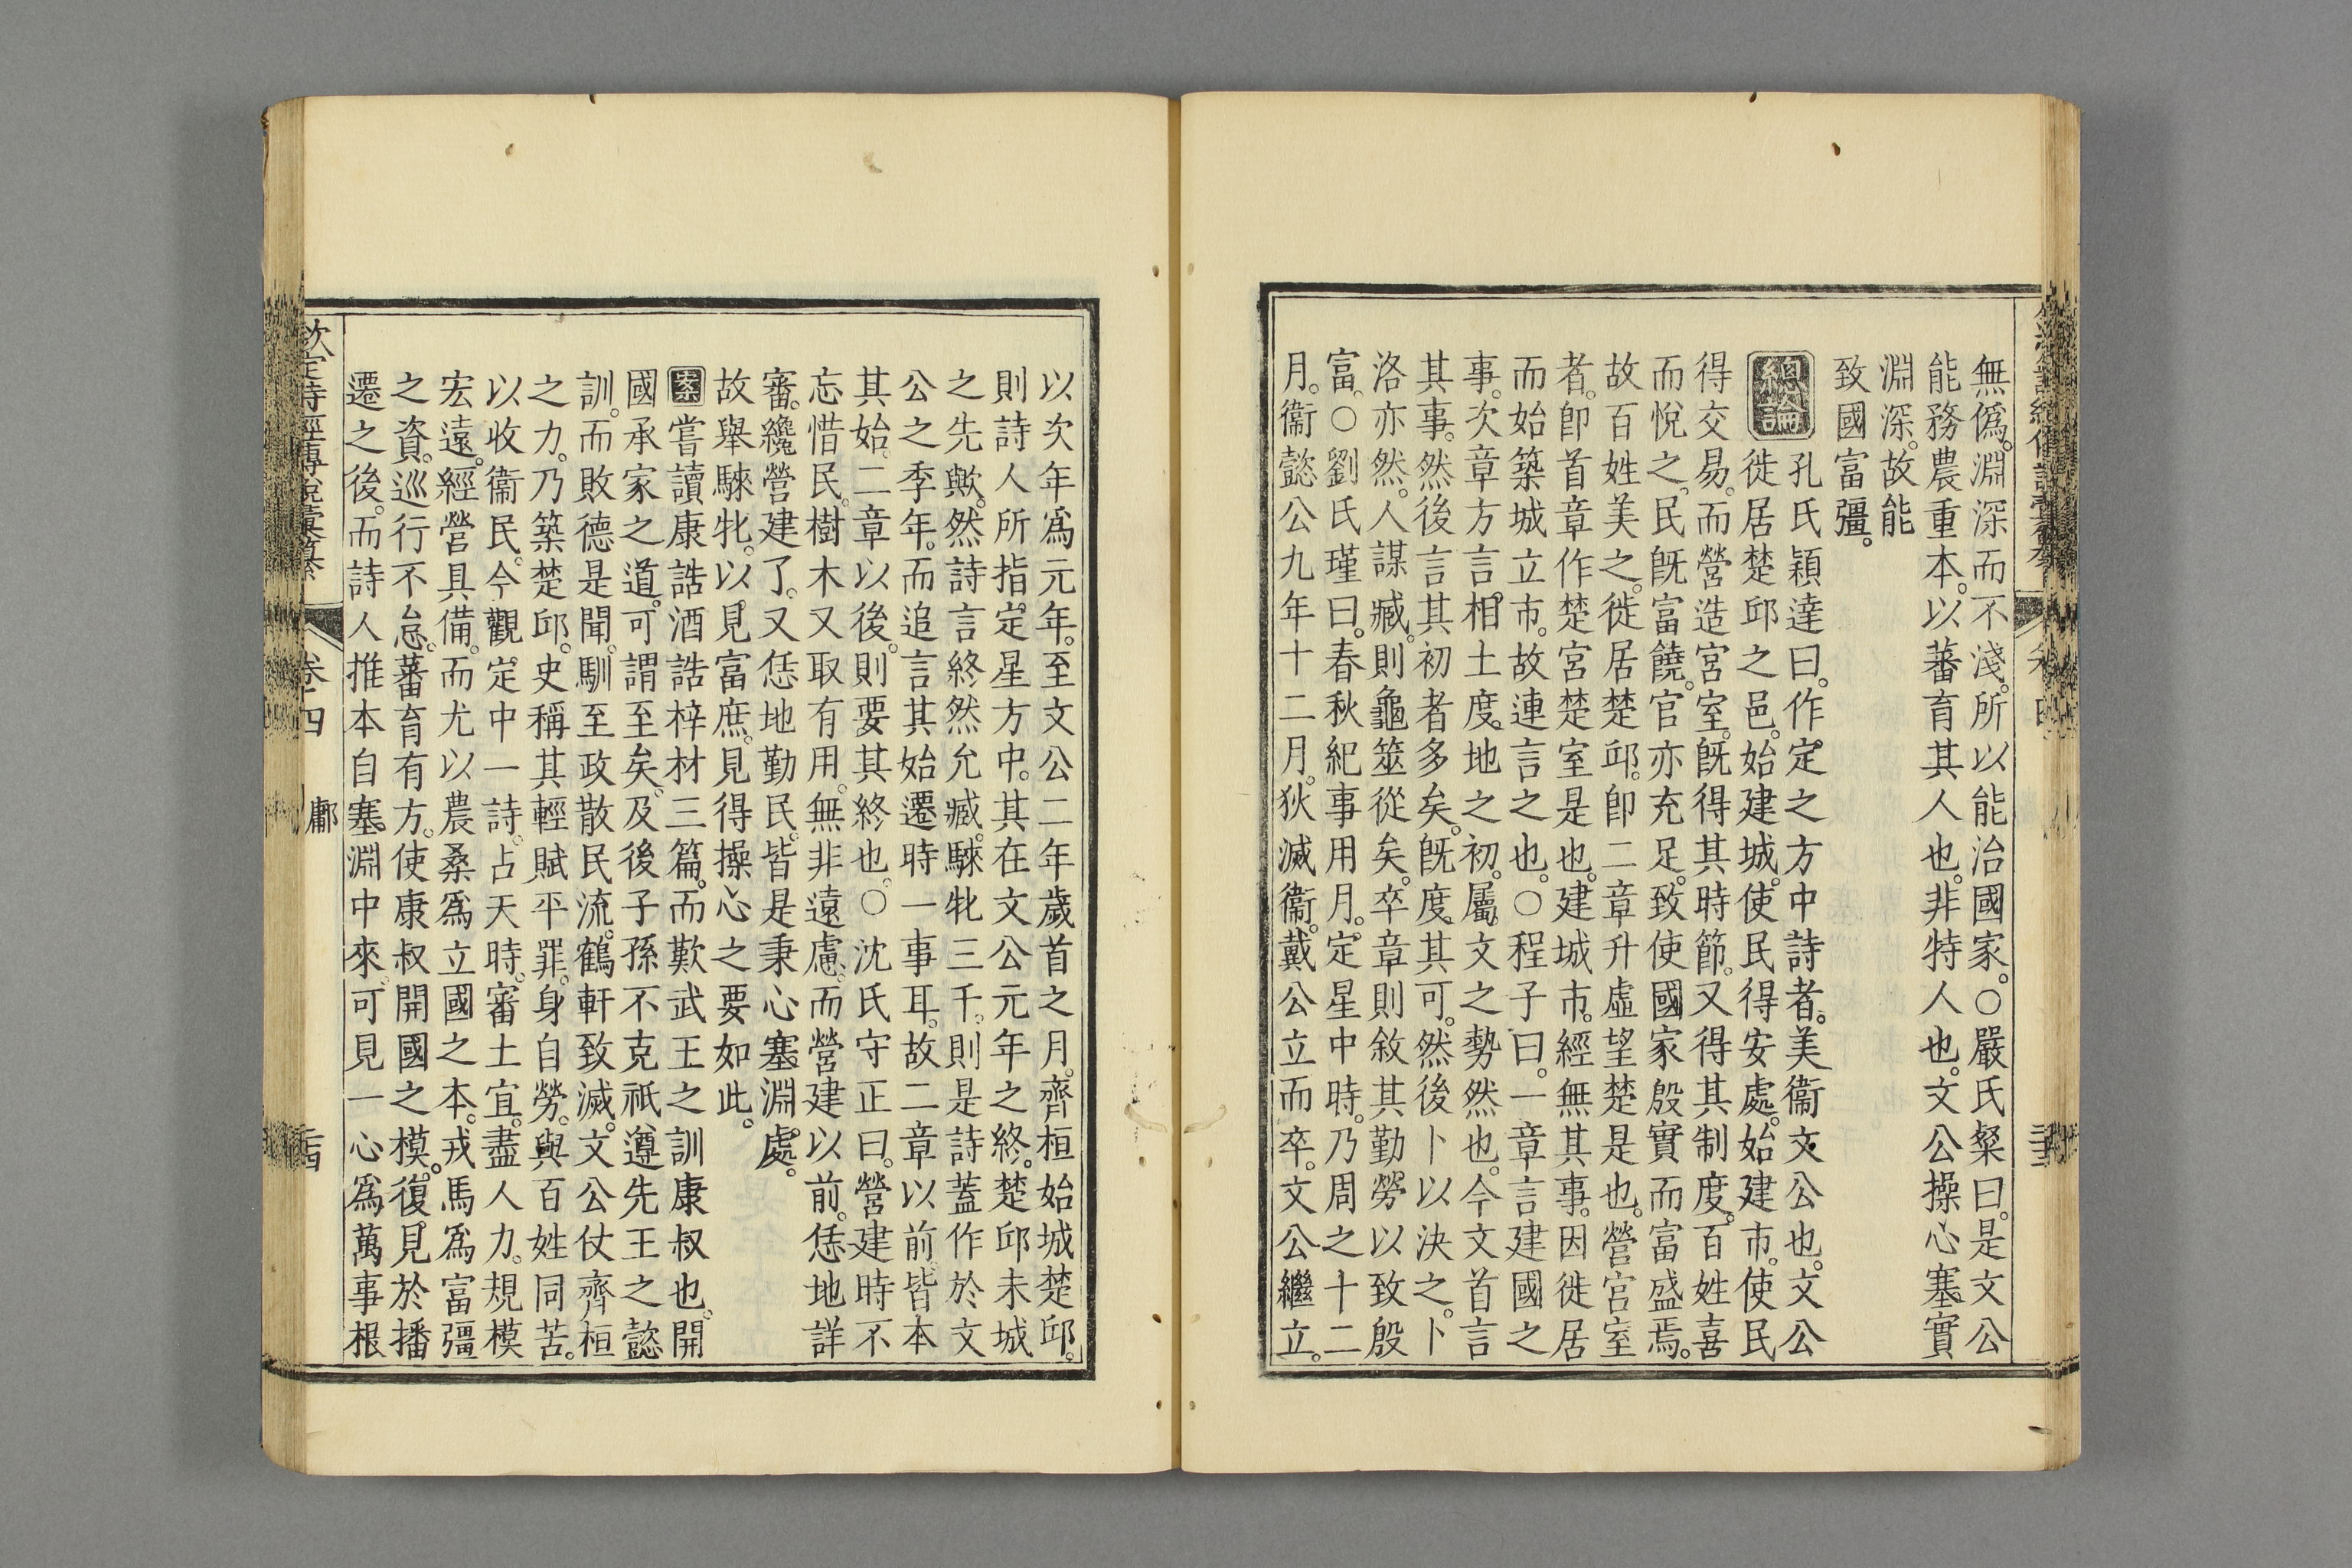 無僞。淵深而不淺。所以能治國家。○嚴氏粲曰。是文公
能務農重本。以蕃育其人也。非特人也。文公操心塞實
淵深。故能
致國富彊。
總論
孔氏穎達曰。作定之方中詩者。美衞文公也。文公
徙居楚邱之邑。始建城。使民得安處。始建市。使民
得交易。而營造宮室。旣得其時節。又得其制度。百姓喜
而悅之。民旣富饒。官亦充足。致使國家殷實而富盛焉。
故百姓美之。徙居楚邱。卽二章升虛望楚是也。營宮室
者。卽首章作楚宮楚室是也。建城市。經無其事。因徙居
而始築城立市。故連言之也。○程子曰。一章言建國之
事。次章方言相土度地之初。屬文之勢然也。今文首言
其事。然後言其初者多矣。旣度其可。然後卜以決之。卜
洛亦然。人謀臧。則龜筮從矣。卒章則敘其勤勞以致殷
富。○劉氏瑾曰。春秋紀事用月。定星中時。乃周之十二
月。衞懿公九年十二月。狄滅衞。戴公立而卒。文公繼立。
以次年爲元年。至文公二年歲首之月。齊桓始城楚邱。
則詩人所指定星方中。其在文公元年之終。楚邱未城
之先歟。然詩言終然允臧。騋牝三千。則是詩蓋作於文
公之季年。而追言其始遷時一事耳。故二章以前。皆本
其始。二章以後。則要其終也。○沈氏守正曰。營建時不
忘惜民。樹木又取有用。無非遠慮。而營建以前。恁地詳
審。纔營建了。又恁地勤民。皆是秉心塞淵處。
故舉騋牝。以見富庶。見得操心之要如此。
案嘗讀康誥酒誥梓材三篇。而歎武王之訓康叔也。開
國承家之道。可謂至矣。及後子孫不克祇遵先王之懿
訓。而敗德是聞。馴至政散民流。鶴軒致滅。文公仗齊桓
之力。乃築楚邱。史稱其輕賦平罪。身自勞。與百姓同苦。
以收衞民。今觀定中一詩。占天時。審土宜。盡人力。規模
宏遠。經營具備。而尤以農桑爲立國之本。戎馬爲富彊
之資。巡行不怠。蕃育有方。使康叔開國之模。復見於播
遷之後。而詩人推本自塞淵中來。可見一心爲萬事根
欽定詩經傳說彙纂
卷四
鄘